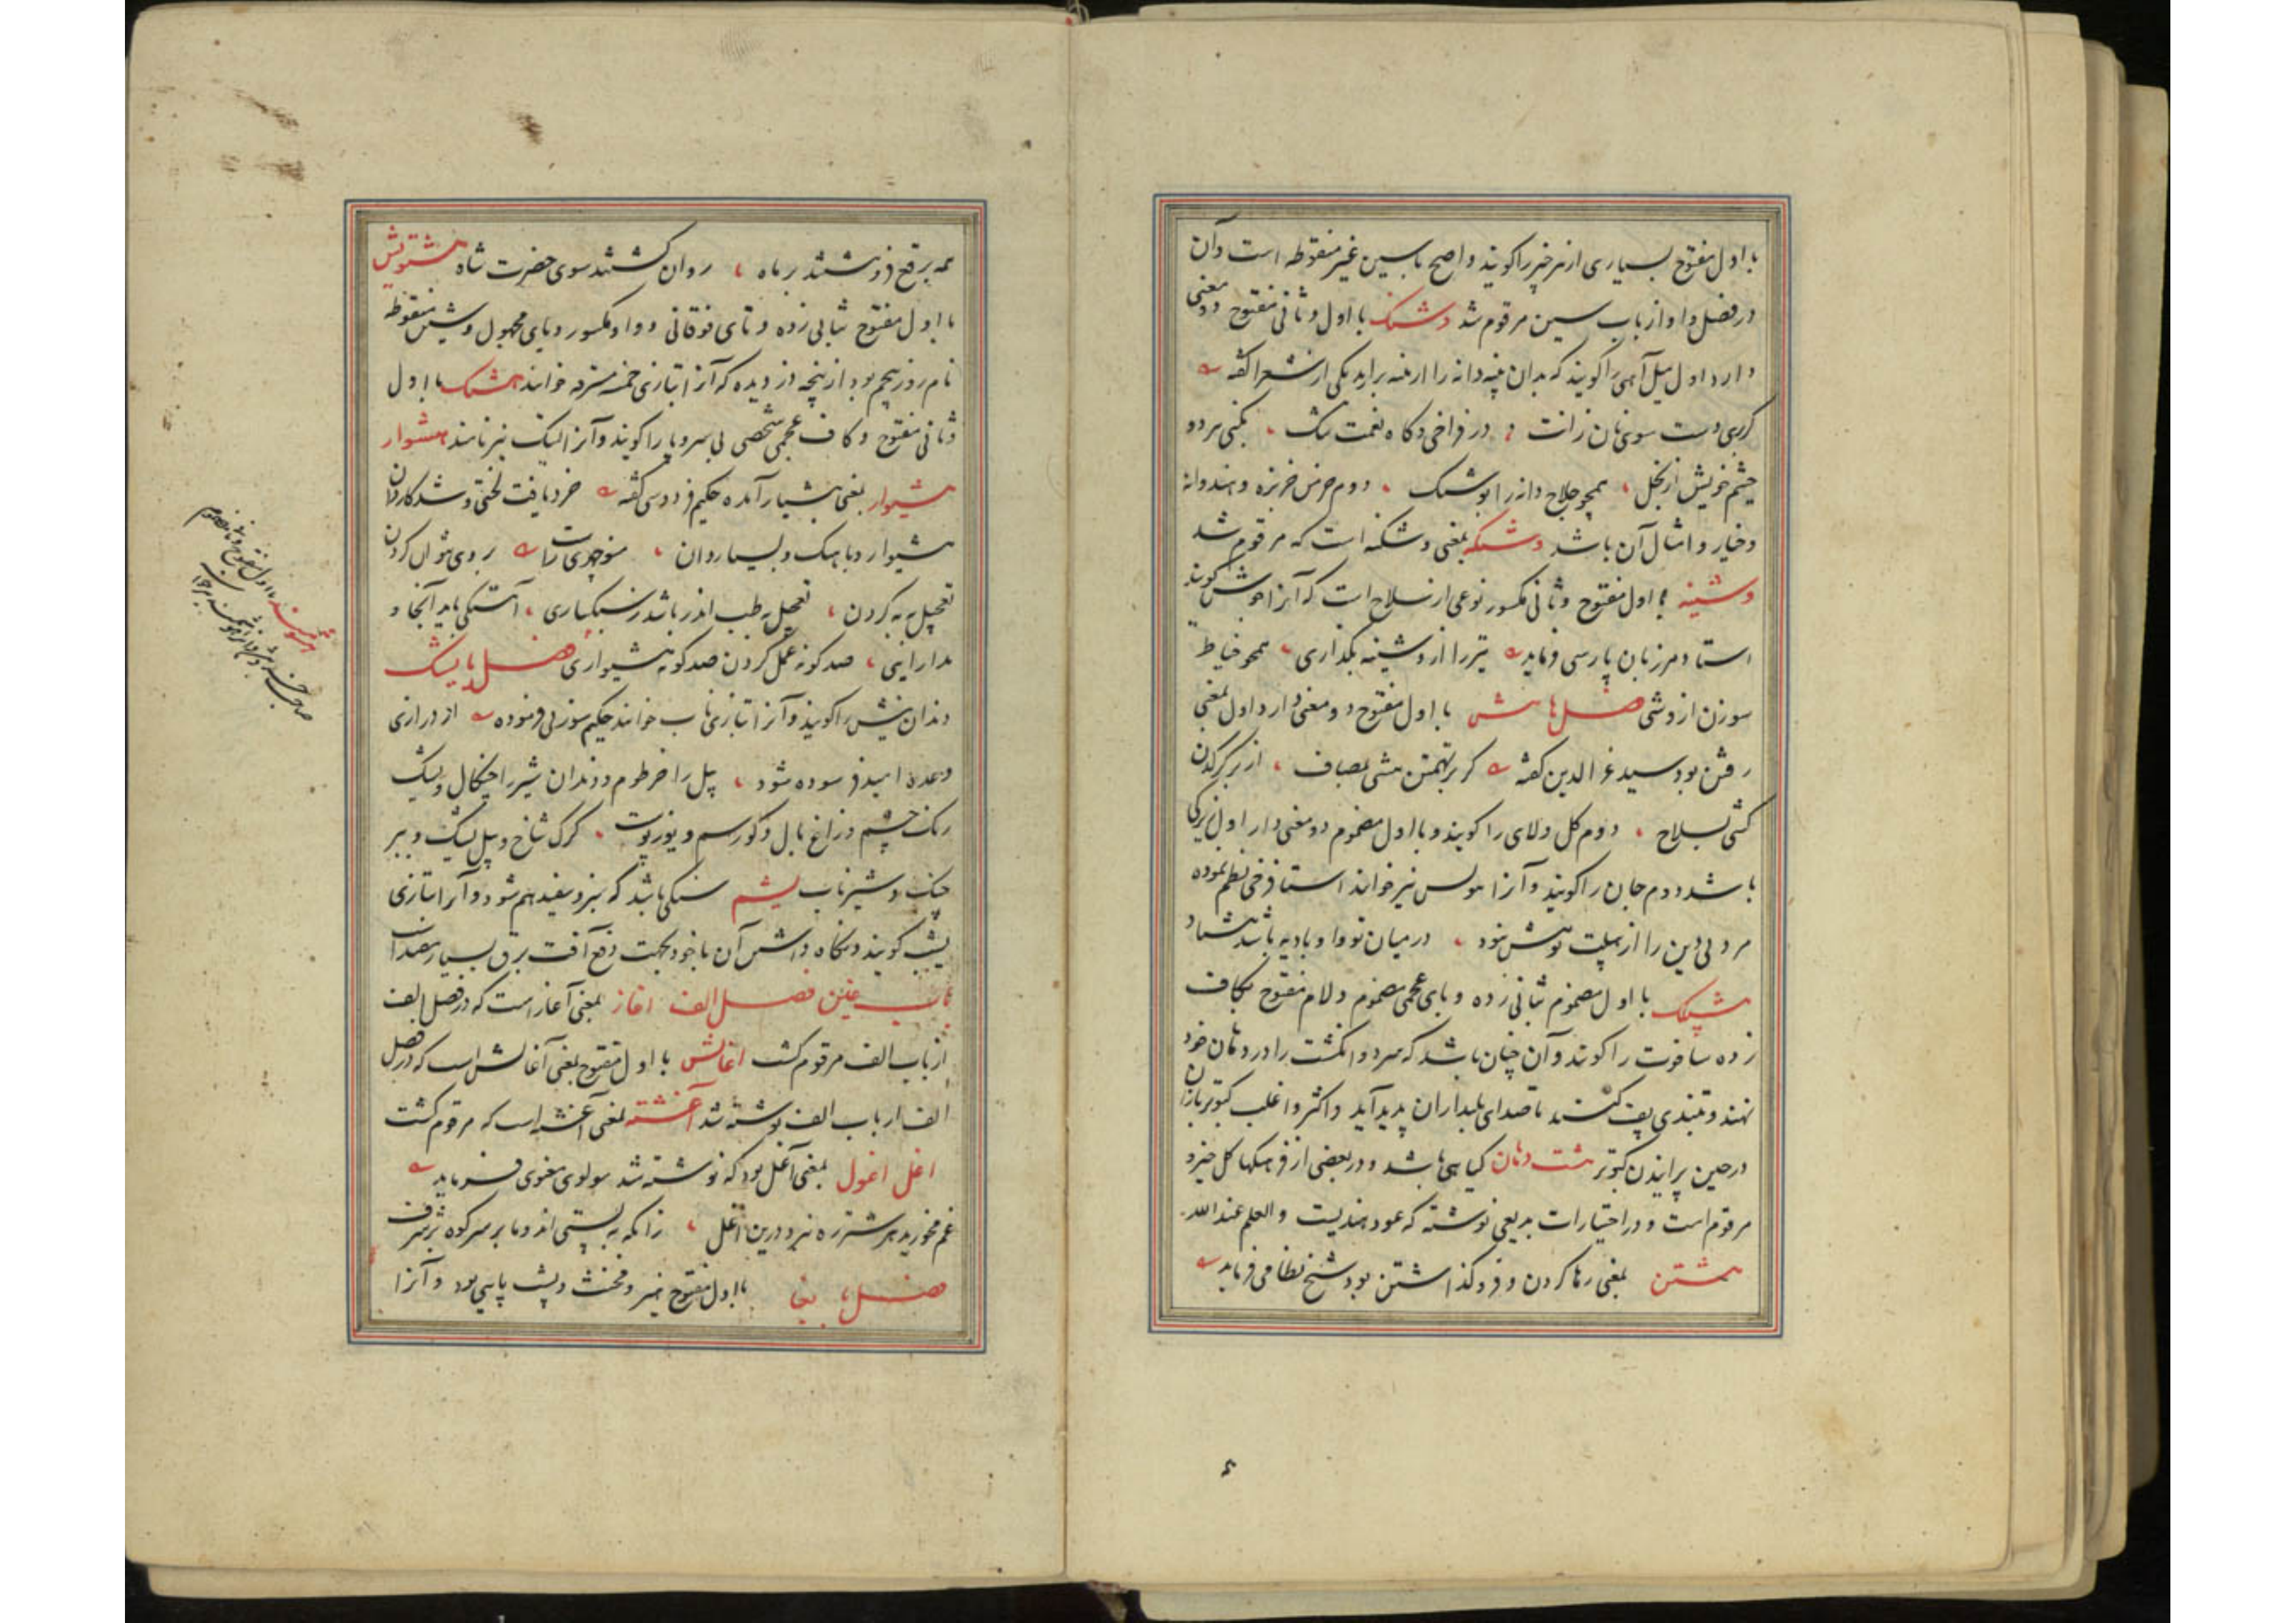 با اول مفتوح بسیاری از هر چیز را کویند و اصح با سین غیر منقوطه است و آن
در فصل واو از باب سین مرقوم شد وشنک با اول و ثانی مفتوح دو معنی
دارد اول میل آهنی را کویند که بدان پنبه دانه را از پنبه براید یکی از شعرا کفته
دست سوی نان در فراخی و کاه نعمت تنک بکنی هر دو
چشم خویش از بخل همچو حلاج دانه را بوشنک دوم خربزه و هندوانه
و خیار و امثال آن باشد وشنکه بمعنی وشنکه است که مرقوم شد
وشینه با اول مفتوح و ثانی مکسور نوعی از سلاح است که آنرا جوشن کویند
استاد مرزبان پارسی فرماید تیر را از وشینه بکذاری همچو خیاط
سوزن از وشی فصل ها هش با اول مفتوح دو معنی دارد اول بمعنی
رفتن بود سید عز الدین کفته کر بر تهمتن هشی بمصاف از بر کرکدن
کشی بسلاح دوم کل ولای را کویند و با اول مضموم دو معنی دارد اول زیرکی
باشد دوم جان را کویند و آنرا هوش نیز خوانند استاد فرخی نظم نموده
مرد بی دین را از هش نبود در میان نووا و بادیه باشد هشاد
هشپلک با اول مضموم بثانی زده و بای عجمی مضموم و لام مفتوح بکاف
زده شافوت را کویند و آن چنان باشد که سر دو انکشت را در دهان خود
نهند و بتندی پف کنند تا صدای بلند از آن پدید آید و اکثر و اغلب کبوتر بازان
در حین پرانیدن کبوتر هشت دهان کیاهی باشد و در بعضی از فرهنکها کل خیرو
مرقوم است و در اختیارات بدیعی نوشته که عود هندیست و العلم عند الله
هشتن بمعنی رها کردن و فرو کذاشتن بود شیخ نظامی فرماید
همه برقع فرو هشتند بر ماه روان کشتند سوی حضرت شاه هشتویش
با اول مفتوح بثانی زده و تای فوقانی و واو مکسور و یای مجهول و شین منقوطه
نام روز پنجم بود از پنجه دزدیده که آنرا بتازی خمسه مسترقه خوانند هشنک با اول
و ثانی مفتوح و کاف عجمی شخصی بی سر و پا را کویند و آنرا نیز نامند هشوار
هشیوار بمعنی هشیار آمده حکیم فردوسی کفته خرد یافت لختی و شد کاردان
هشیوار و با هنک و بسیار دان منوچهری راست بر روی نتوان کردن
تعجیل به به کردن تعجیل به طب اندر باشد ز سبکساری آهستکی باید آنجا و
مدارایی صد کونه عمل کردن صد کونه هشیواری فصل یا یشک
دندان پیش را کویند و آنرا بتازی ناب خوانند حکیم سوزنی فرموده از درازی
وعده امید فرسوده شود پیل را خرطوم و دندان شیر را چنکال و یشک
رنک چشم و زاغ بال و کور سم و یوز پوست کرک شاخ و پیل یشک و ببر
چنک و شیر ناب یشم سنکی باشد که سبز و سفید هم شود و آنرا بتازی
یشب کویند و نکاه داشتن آن با خود بجهت دفع آفت برق بسیار مفید است
باب غین فصل الف اغاز بمعنی آغاز است که در فصل الف
از باب الف مرقوم کشت اغالش با اول مفتوح بمعنی آغالش است که در فصل
الف از باب الف نوشته شد آغشته بمعنی آغشته است که مرقوم کشت
اغل اغول بمعنی آغل بود که نوشته شد مولوی معنوی فرماید
غم مخورید هر شتر ره نبرد درین اغل زانکه به پستی اند و ما بر سر کوه بر شرف
فصل با بغا با اول مفتوح هیز و مخنث و پشت پایی بود و آنرا
با اول مفتوح و ثانی مضموم